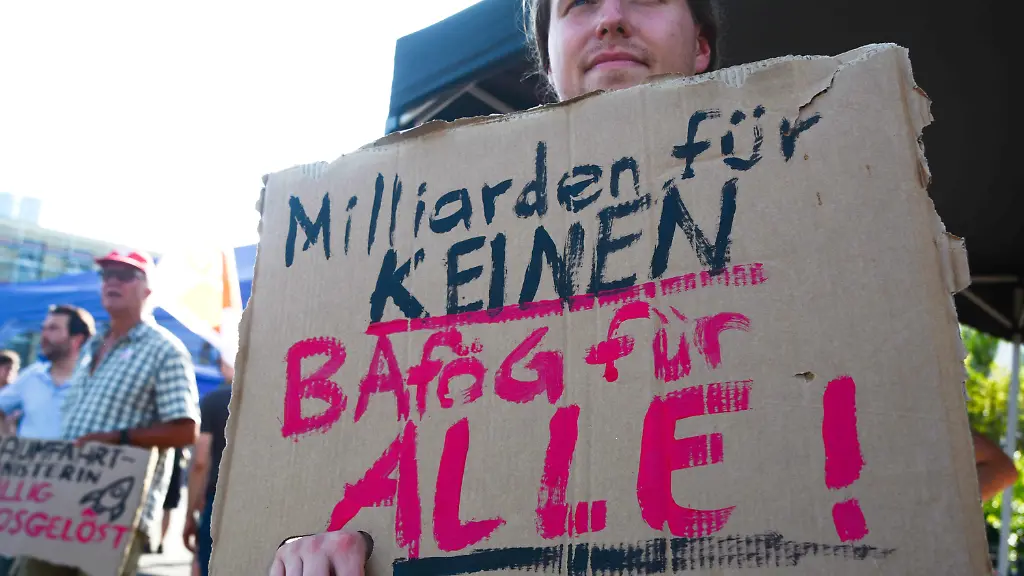 Milliarden für
KEINEN
BAföG für
ALLE!
AUMFAHRT-
NISTERIN
LLIG
OSGELÖST